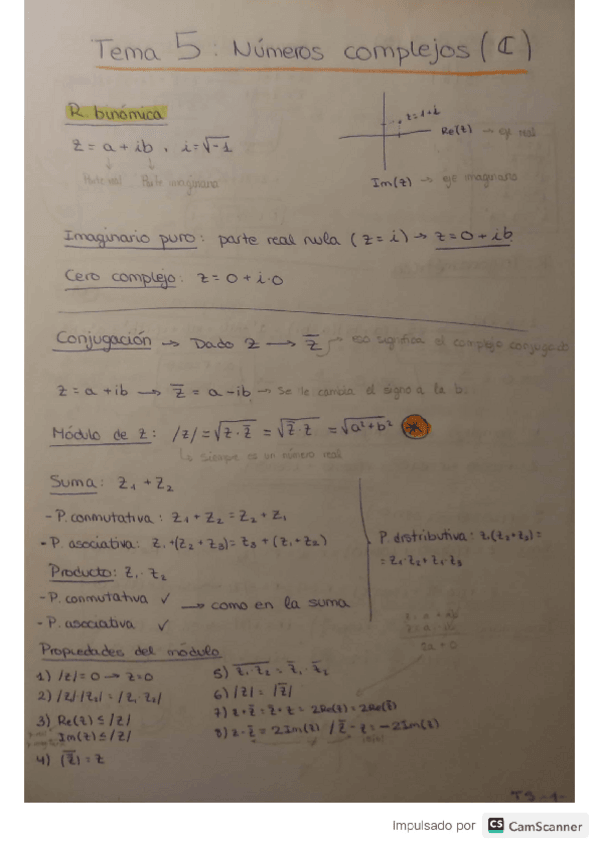 Tema 5: Números complejos (ℂ)
R. binómica
z = a + ib, i = √-1
Parte real Parte imaginaria
z=1+i
Re(z) → eje real
Im(z) → eje imaginario
Imaginario puro: parte real nula (z = i) → z = 0 + ib
Cero complejo: z = 0 + i·0
Conjugación → Dado z → z̅ → eso significa el complejo conjugado
z = a + ib → z̅ = a - ib → se le cambia el signo a la b.
Módulo de z: /z/ = √z·z̅ = √z̅·z = √a²+b²
↳ siempre es un número real
Suma: z₁ + z₂
- P. conmutativa: z₁ + z₂ = z₂ + z₁
- P. asociativa: z₁ + (z₂ + z₃) = z₃ + (z₁ + z₂)
P. distributiva: z₁(z₂+z₃) =
= z₁·z₂ + z₁·z₃
Producto: z₁·z₂
- P. conmutativa ✓ → como en la suma
- P. asociativa ✓
z = a + ib
z = a - ib
2a + 0
Propiedades del módulo
1) /z/ = 0 → z=0
2) /z₁/·/z₂/ = /z₁ z₂/
3) Re(z) ≤ /z/
Im(z) ≤ /z/
4) (z̿) = z
5) z̅₁·z̅₂ = z̅₁·z̅₂
6) /z/ = /z̅/
7) z+z̅ = z̅+z = 2Re(z) = 2Re(z̅)
8) z-z̅ = 2Im(z) / z̅-z = -2Im(z)
T5 -1-
Impulsado por CS CamScanner